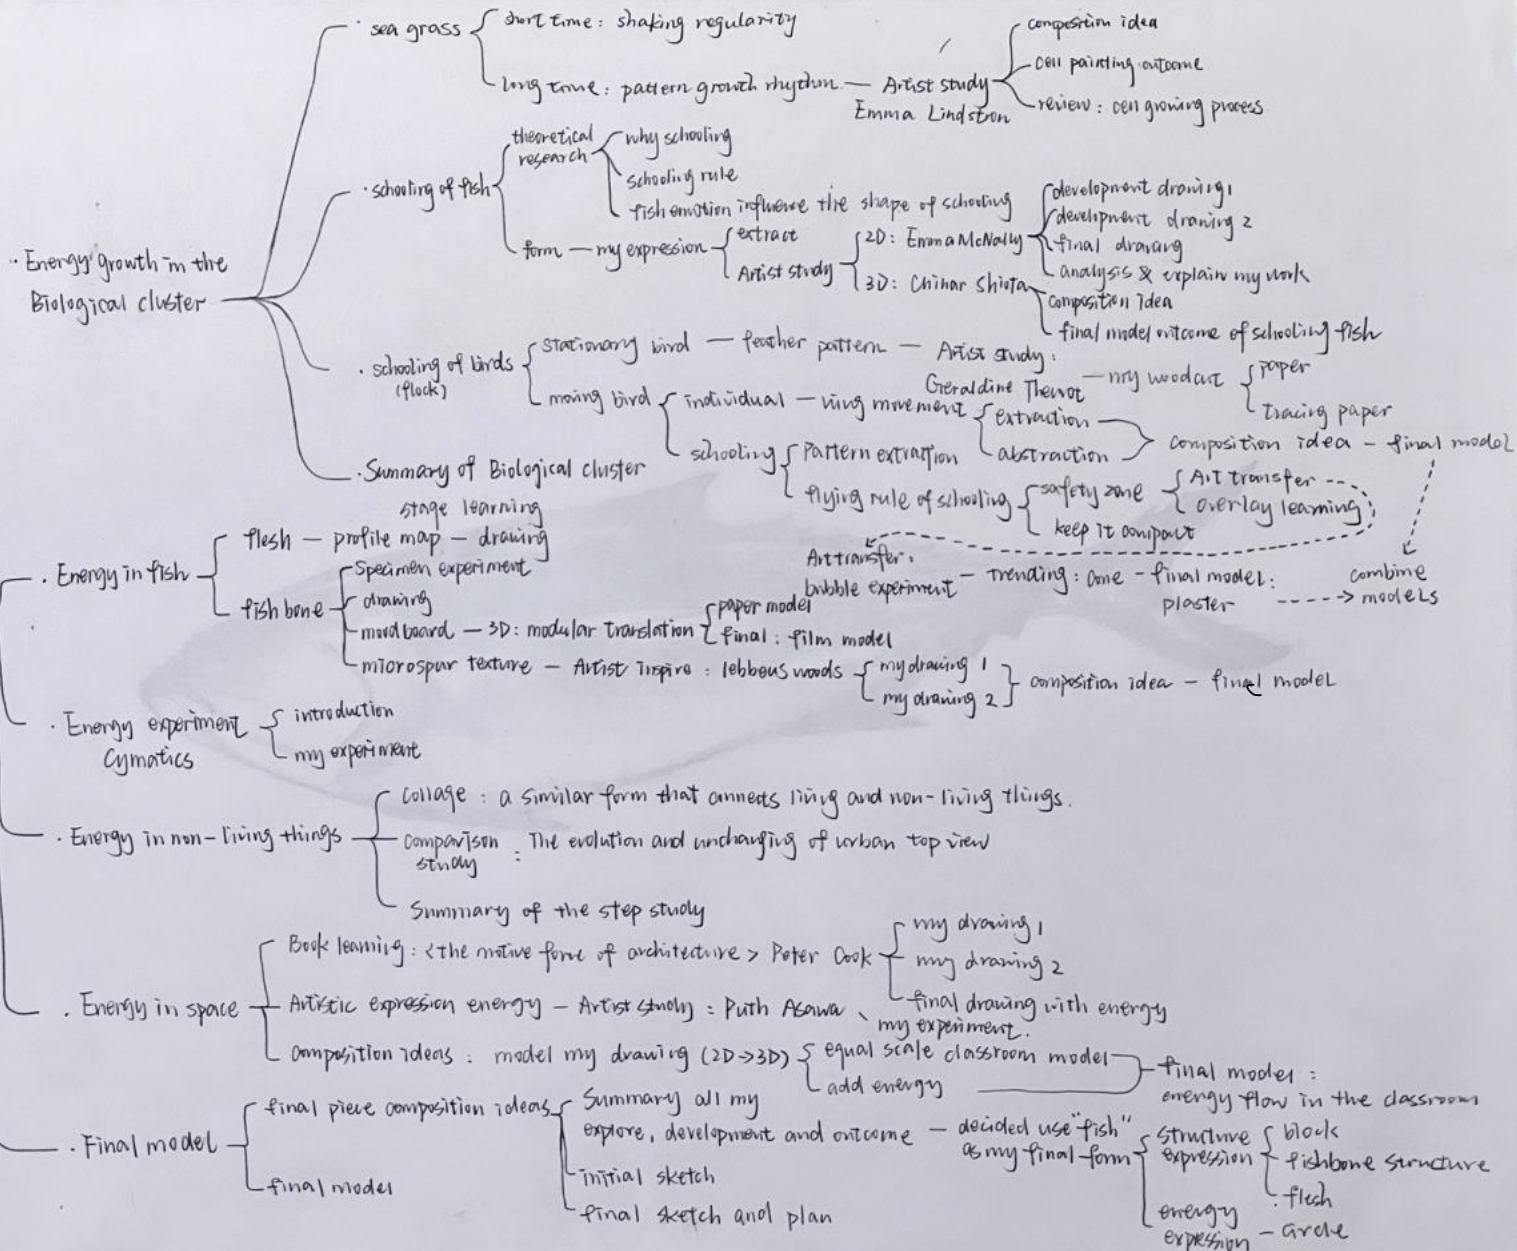 · sea grass
short time: shaking regularity
long time: pattern growth rhythm — Artist study
Emma Lindstron
composition idea
cell painting outcome
review: cell growing process
· schooling of fish
theoretical
research
why schooling
schooling rule
fish emotion influence the shape of schooling
form — my expression
extract
Artist study
2D: Emma McNally
development drawing 1
development drawing 2
final drawing
analysis & explain my work
3D: Chihar Shiota
composition idea
final model outcome of schooling fish
·· Energy growth in the
Biological cluster
· schooling of birds
(flock)
stationary bird — feather pattern — Artist study:
Geraldine Thenot — my woodcut
paper
tracing paper
moving bird
individual — wing movement
extraction
abstraction
composition idea — final model
schooling
Pattern extraction
flying rule of schooling
safety zone
keep it compact
Art transfer
overlay learning
· Summary of Biological cluster
stage learning
Art transfer:
bubble experiment — Trending: cone — final model:
plaster
combine
models
· Energy in fish
flesh — profile map — drawing
fish bone
Specimen experiment
drawing
moodboard — 3D: modular translation
paper model
final: film model
microspur texture — Artist inspire: lebbeus woods
my drawing 1
my drawing 2
composition idea — final model
· Energy experiment
Cymatics
introduction
my experiment
· Energy in non-living things
collage: a similar form that connects living and non-living things.
comparison
study
: The evolution and unchanging of urban top view
Summary of the step study
· Energy in space
Book learning: <the motive force of architecture> Peter Cook
my drawing 1
my drawing 2
final drawing with energy
Artistic expression energy — Artist study: Ruth Asawa、
my experiment.
composition ideas: model my drawing (2D→3D)
equal scale classroom model
add energy
final model:
energy flow in the classroom
· Final model
final piece composition ideas
Summary all my
explore, development and outcome — decided use "fish"
as my final form
initial sketch
final sketch and plan
structure
expression
block
fishbone structure
flesh
energy
expression — circle
final model